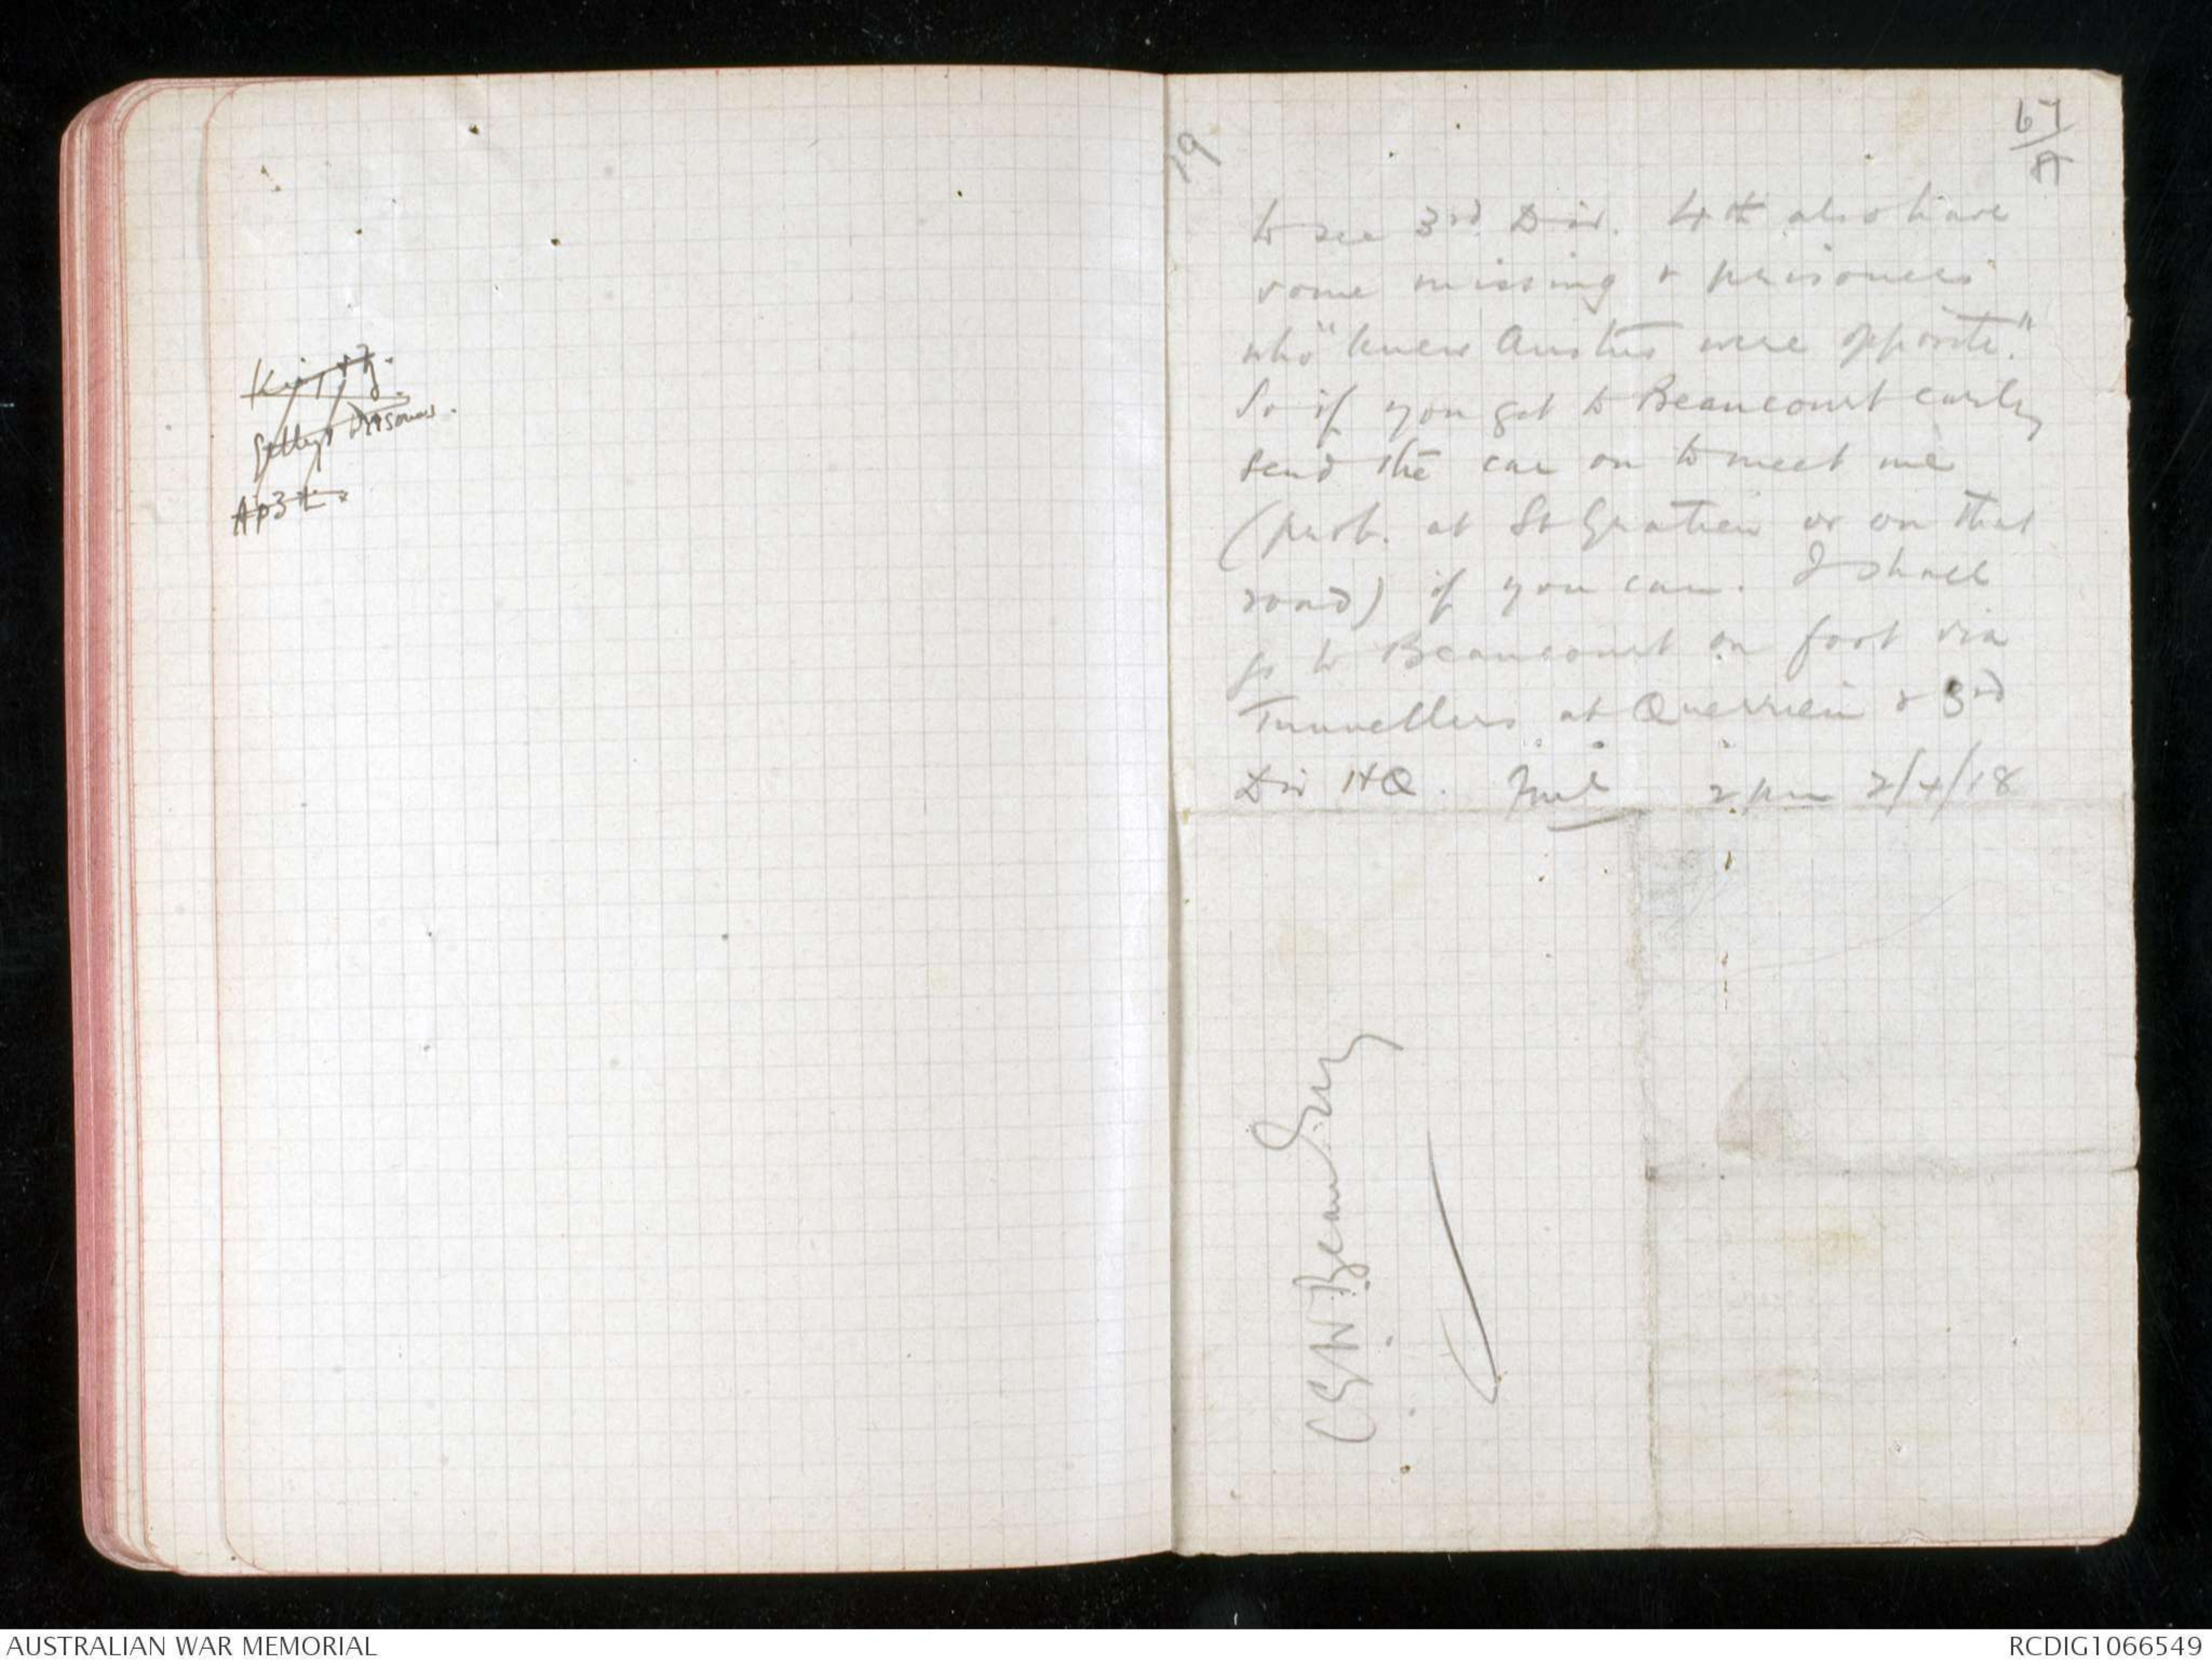 Ap 3rd
19
67/A
to see 3rd Div. 4th also have
some missing & prisoners
who "knew Austns were opposite."
So if you get to Beaucourt early
send the car on to meet me
(prob. at St Gratien or on that
road) if you can. I shall
go to Beaucourt on foot via
Tunnellers at Querrieu & 3rd
Div HQ. 2 pm 2/4/18
C E W Bean
AUSTRALIAN WAR MEMORIAL
RCDIG1066549